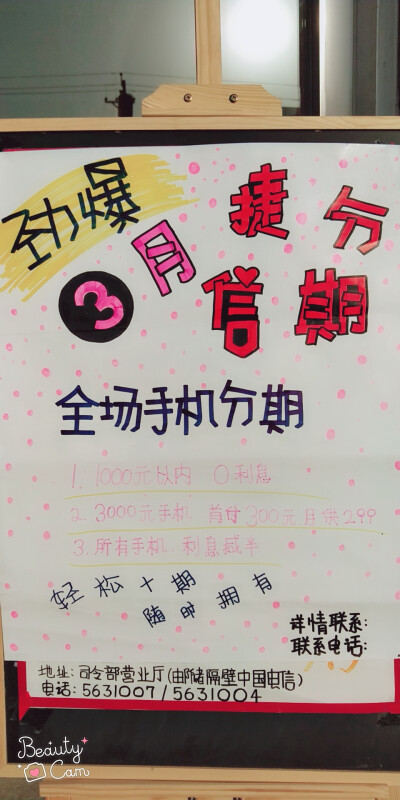 劲爆
3月
捷信
分期
全场手机分期
1. 1000元以内 0利息
2. 3000元手机 首付300元月供299
3. 所有手机 利息减半
轻松十期
随时拥有
详情联系:
联系电话:
地址: 司令部营业厅(邮储隔壁中国电信)
电话: 5631007 / 5631004
Beauty Cam